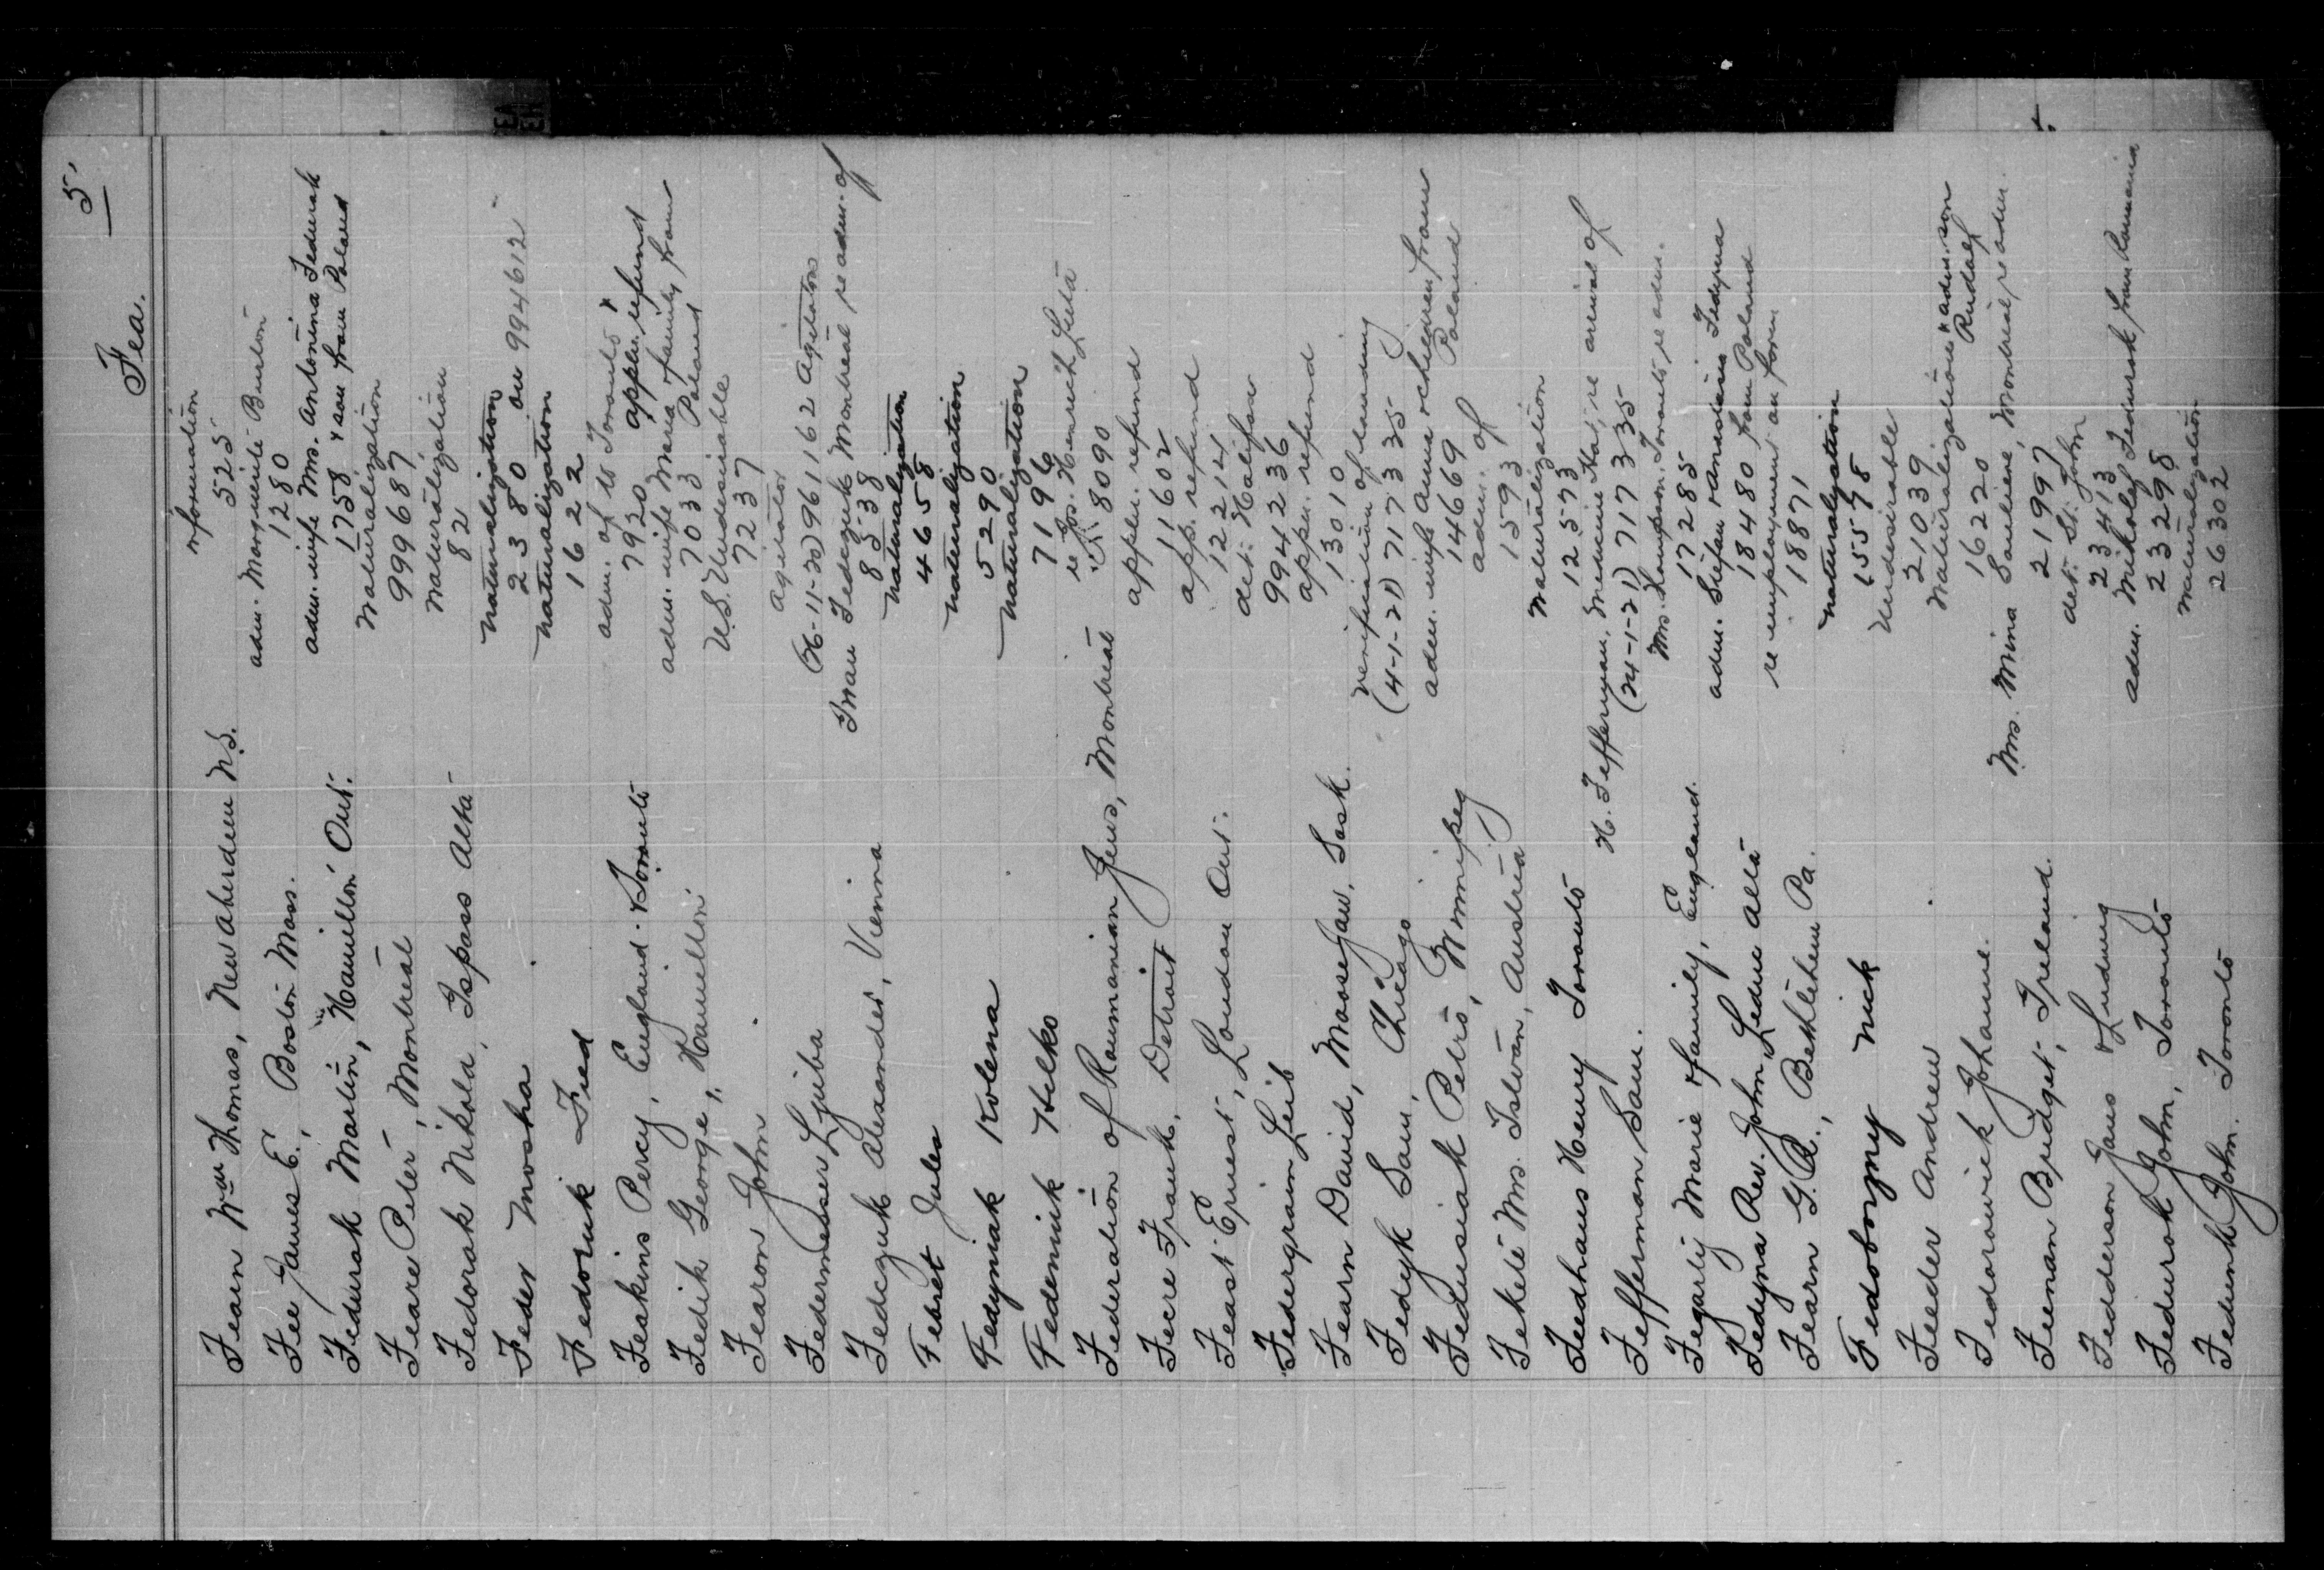 5.
Fea.
information
Fearn Wm Thomas, New Aberdeen N.S. 525
adm. Marguerite Burton
Fee James E., Boston Mass. 1280
adm. wife Mrs. Antonina Fedurak
Fedurak Martin, Hamilton Ont. 1758 & son from Poland
Naturalization
Feare Peter, Montreal 999687
Naturalization
Fedorak Nikola, Ispass Alta 82
naturalization
Feder Moska 2380 on 994612
naturalization
Fedoruk Fred 1622
adm. of to Toronto &
Feakins Percy, England. Toronto 7920 appln. refund
adm. wife Maria & family from
Fedik George, Hamilton 7033 Poland
U.S. Undesirable
Fearon John 7237
Agitator
Federmesser Ljuba (6-11-20) 961162 Agitators
Iwan Fedezuk Montreal re adm. of
Fedczuk Alexander, Vienna 8538
naturalization
Febret Jules 4658
naturalization
Fedyniak Kolena 5290
naturalization
Fedeniuk Hilko 7196
re Jos. Henrich Luta
Federation of Roumanian Jews, Montreal 8090
appln. refund
Fecre Frank, Detroit 11602
app. refund
Feast Ernest, London Ont. 12214
det. Halifax
Federgraim Leib 994236
appn. refund
Fearn David, Moose Jaw, Sask. 13010
verification of landing
Fedyk Sam, Chicago (4-1-21) 717335
adm. wife Anna & children from
Fedusiak Petro, Winnipeg 14669 Poland
adm. of
Fekete Mrs. Istvan, Austria 1593
Naturalization
Feedhaus Henry Toronto 12573
H. Fefferman, Medicine Hat, re arrival of
Fefferman Sam. (24-1-21) 717335
Mrs. Hampson. Toronto, re adm.
Fegarty Marie & family, England. 17285
adm. Stefan & Anastasia Fedyna
Fedyna Rev. John Leduc Alta 18480 from Poland
re employment on farm
Fearn G. R., Bethlehem Pa. 18871
naturalization
Fedoborzny Nick 15578
Undesirable
Feeder Andrew 21039
Naturalization & adm. son
Fedorowick Johanne. 16220 Rudolf
Mrs. Mina Souliere, Montreal, re adm.
Feenan Bridget, Ireland. 21997
det. St. John
Fedderson Jans & Ludwig 23413
adm. Mikolaj Fedurak from Rumania
Fedurak John, Toronto 23298
Naturalization
Fedunk John. Toronto 26302